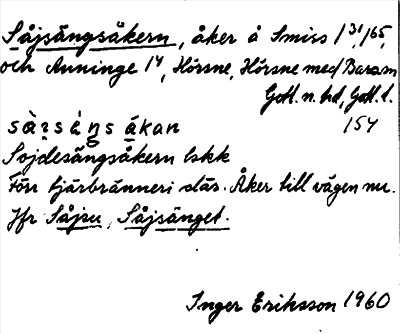 Såjsängsåkern, åker å Smiss 1³¹, 1⁶⁵,
och Anninge 1⁴, Hörsne, Hörsne med Bara sn
Gotl. n. hd, Gotl. l.
154
Sojdesängsåkern lskk
Förr tjärbränneri där. Åker till vägen nu.
Jfr Såjsu, Såjsänget.
Inger Eriksson 1960